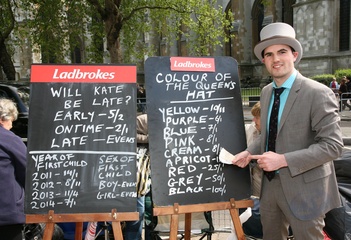 Ladbrokes
WILL KATE
BE LATE?
EARLY - 5/2
ONTIME - 2/1
LATE - EVENS
YEAR OF
FIRST CHILD
2011 - 14/1
2012 - 8/11
2013 - 11/4
2014 - 7/1
SEX OF
FIRST
CHILD
BOY - EVENS
GIRL - EVENS
Ladbrokes
COLOUR OF
THE QUEENS
HAT
YELLOW -
PURPLE -
BLUE -
PINK -
CREAM -
APRICOT -
RED - 25/1
GREY - 50/1
BLACK - 100/1